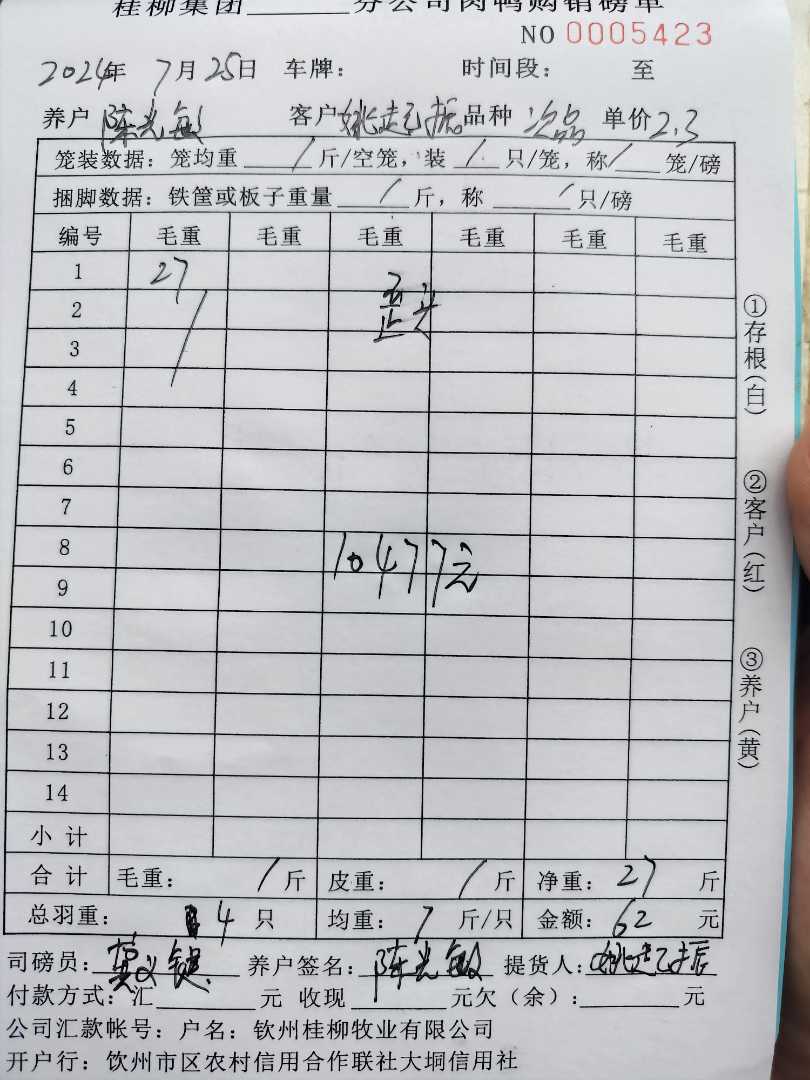 桂柳集团______分公司肉鸭购销磅单
NO 0005423
2024年 7月25日 车牌: 时间段: 至
养户 陈光敏 客户 姚起振 品种 次品 单价2.3
笼装数据: 笼均重 / 斤/空笼, 装 / 只/笼, 称/ 笼/磅
捆脚数据: 铁筐或板子重量 / 斤, 称 / 只/磅
编号 毛重 毛重 毛重 毛重 毛重 毛重
1 27
2 歪头
3
4
5
6
7
8 10477元
9
10
11
12
13
14
小 计
合 计 毛重: / 斤 皮重: / 斤 净重: 27 斤
总羽重: 4 只 均重: 7 斤/只 金额: 62 元
司磅员: 养户签名: 陈光敏 提货人: 姚起振
付款方式: 汇______元 收现______元欠(余):______元
公司汇款帐号: 户名: 钦州桂柳牧业有限公司
开户行: 饮州市区农村信用合作联社大垌信用社
①存根(白)
②客户(红)
③养户(黄)